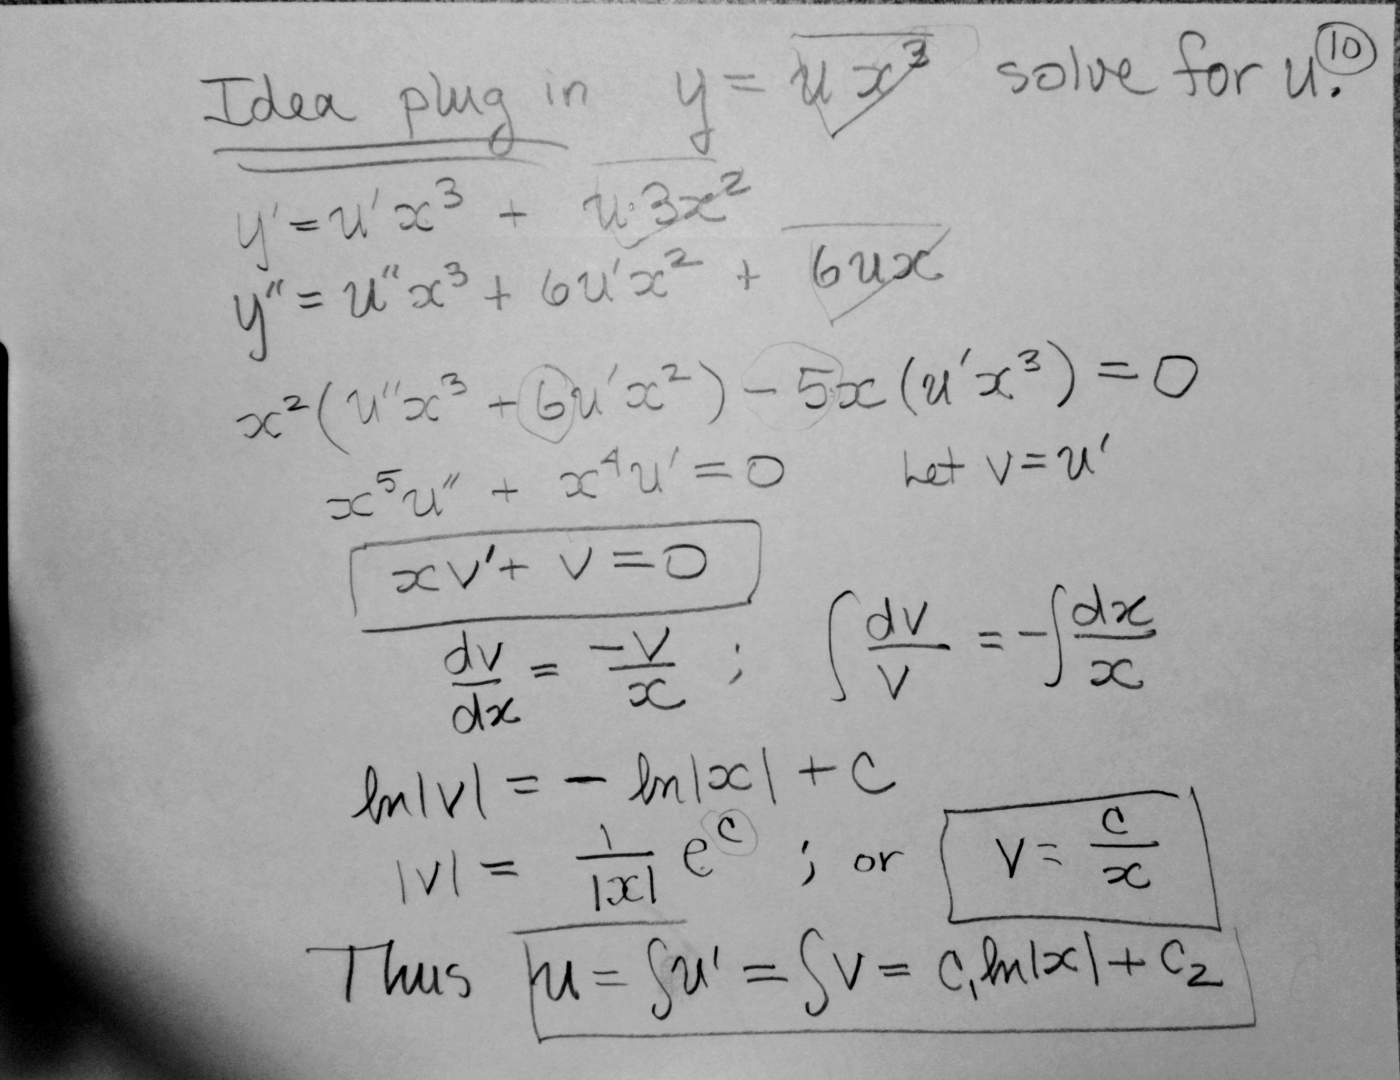 Idea plug in y = ux³ solve for u. ⑩
y' = u'x³ + u·3x²
y" = u"x³ + 6u'x² + 6ux
x²(u"x³ + 6u'x²) - 5x(u'x³) = 0
x⁵u" + x⁴u' = 0 Let v = u'
xv' + v = 0
dv/dx = -v/x ; ∫ dv/v = -∫ dx/x
ln|v| = - ln|x| + C
|v| = 1/|x| e^c ; or v = c/x
Thus u = ∫u' = ∫v = c₁ln|x| + c₂